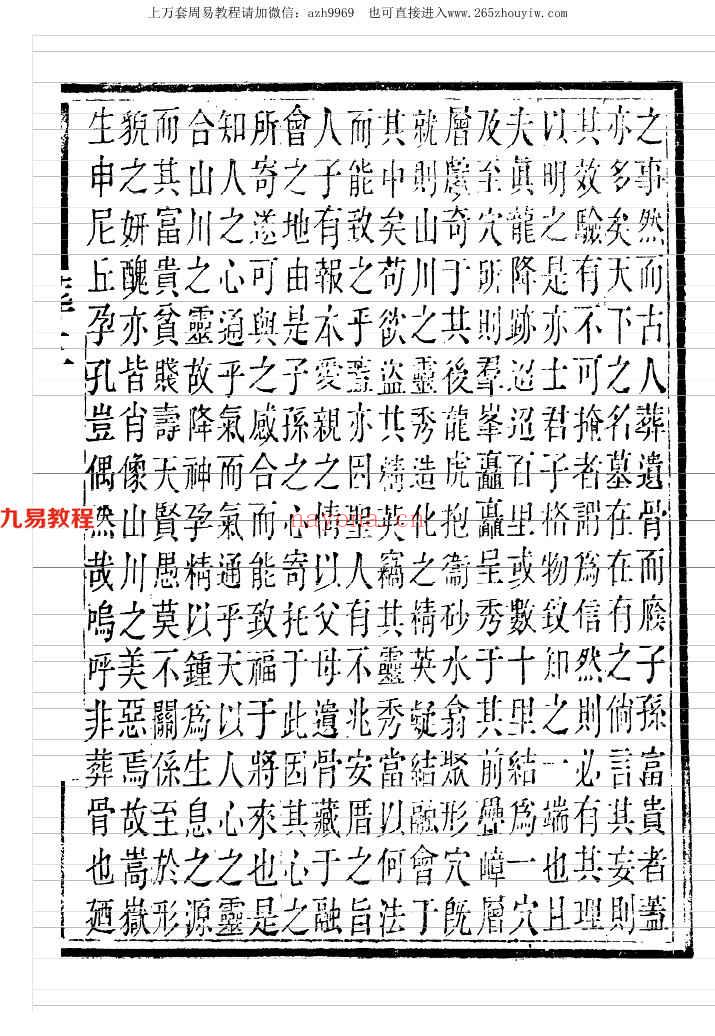 上万套周易教程请加微信：azh9969 也可直接进入www.265zhouyiw.com
之事然而古人葬遺骨而廕子孫富貴者蓋
亦多矣天下之名墓在在有之倘言其妄則
其效驗有不可掩者謂爲信然則必有其理
以明之是亦士君子格物致知之一端也且
夫眞龍降跡迢迢百里或數十里結爲一穴
及至穴則羣峯矗矗呈秀于其前疊嶂層
層獻奇于其後龍虎抱衞砂水翕聚形穴旣
就則山川之靈秀造化之精英凝結融會于
其中矣苟欲盜其精英竊其靈秀當以何法
而能致之乎葢亦因聖人有不兆安厝之旨
人子有報本愛親之情以父母遺骨藏于融
會之地由是子孫之心寄托于此因其心之
所寄遂可與之感合而能致福于將來也是
知人之心通乎氣而氣通乎天以人心之靈
合山川之靈故降神孕精以鍾爲生息之源
而其富貴貧賤壽夭賢愚莫不關係至於形
貌之妍醜亦皆肖像山川之美惡焉故嵩嶽
生申尼丘孕孔豈偶然哉嗚呼非葬骨也廼
九易教程
nayona.cn